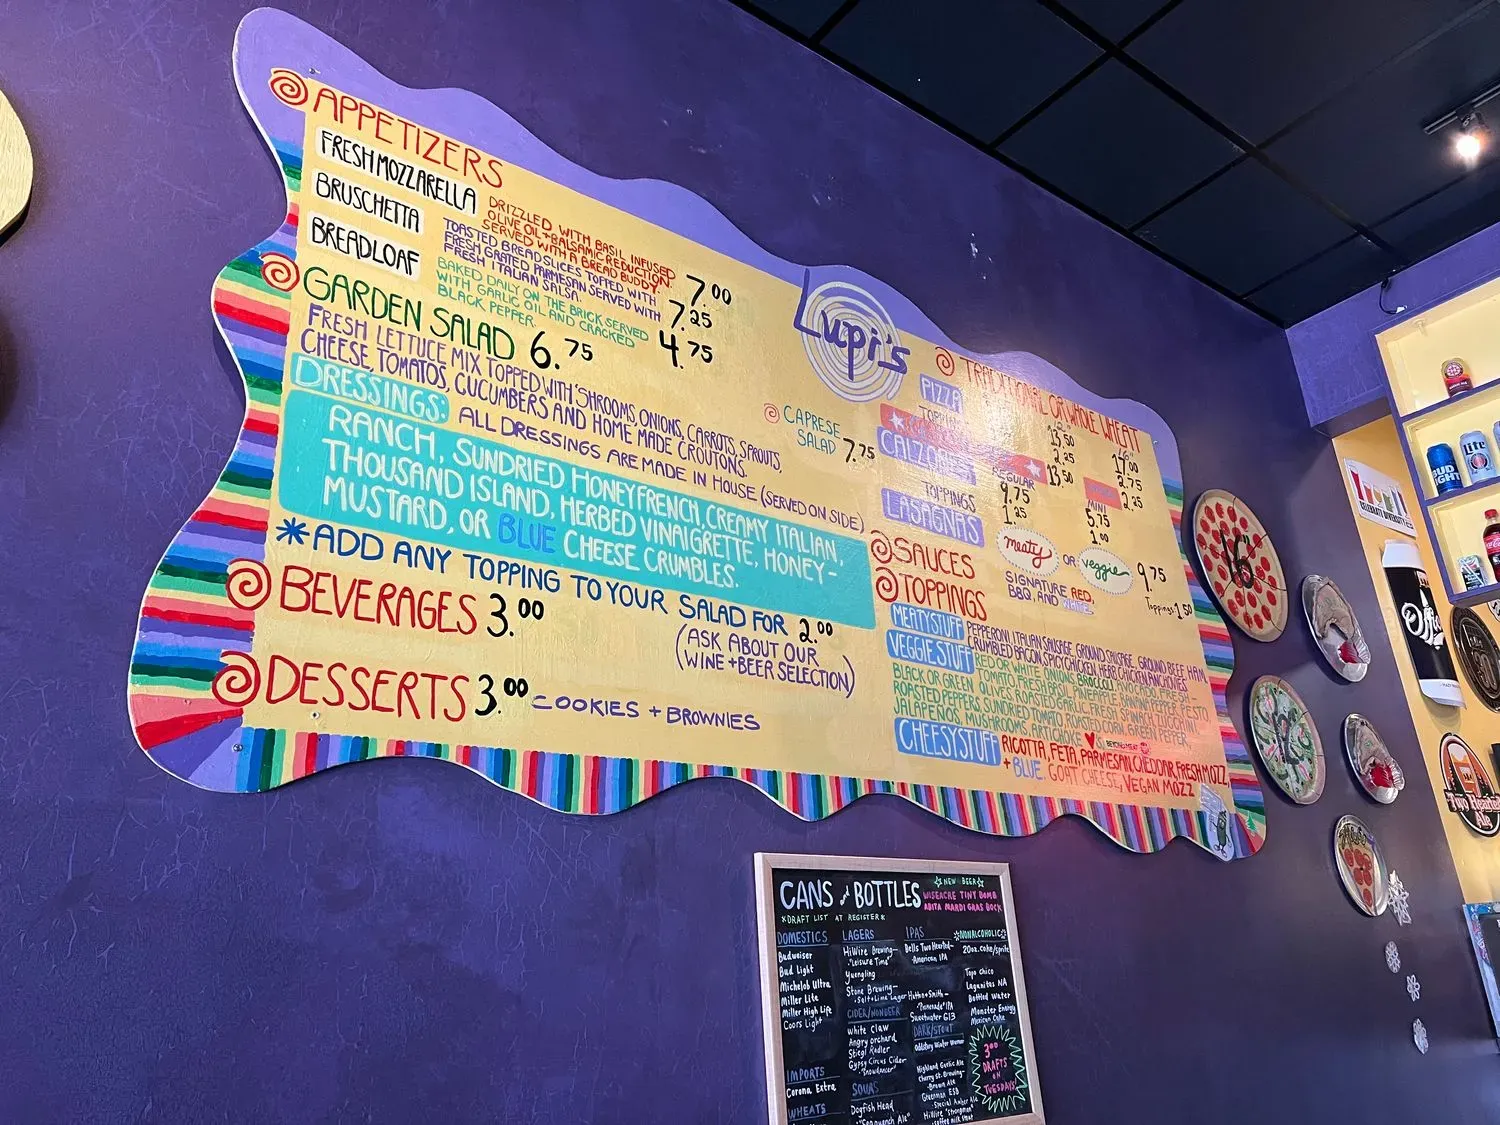 APPETIZERS
FRESH MOZZARELLA
DRIZZLED WITH BASIL INFUSED
OLIVE OIL + BALSAMIC REDUCTION.
SERVED WITH A BREAD BUDDY.
7.00
BRUSCHETTA
TOASTED BREAD SLICES TOPPED WITH
FRESH GRATED PARMESAN SERVED WITH
FRESH ITALIAN SALSA.
7.25
BREADLOAF
BAKED DAILY ON THE BRICK SERVED
WITH GARLIC OIL AND CRACKED
BLACK PEPPER.
4.75
GARDEN SALAD 6.75
FRESH LETTUCE MIX TOPPED WITH 'SHROOMS, ONIONS, CARROTS, SPROUTS,
CHEESE, TOMATOS, CUCUMBERS AND HOME MADE CROUTONS.
DRESSINGS: ALL DRESSINGS ARE MADE IN HOUSE (SERVED ON SIDE)
RANCH, SUNDRIED HONEYFRENCH, CREAMY ITALIAN,
THOUSAND ISLAND, HERBED VINAIGRETTE, HONEY-
MUSTARD, OR BLUE CHEESE CRUMBLES.
*ADD ANY TOPPING TO YOUR SALAD FOR 2.00
BEVERAGES 3.00
(ASK ABOUT OUR
WINE + BEER SELECTION)
DESSERTS 3.00 COOKIES + BROWNIES
CAPRESE
SALAD 7.75
Lupi's
TRADITIONAL OR WHOLE WHEAT
PIZZA
13.50
17.00
2.25
2.75
13.50
2.25
CALZONES
REGULAR
9.75
5.75
TOPPINGS
1.25
1.00
LASAGNAS
meaty OR veggie 9.75
Toppings 1.50
SAUCES
SIGNATURE RED,
BBQ, AND WHITE
TOPPINGS
MEATYSTUFF PEPPERONI, ITALIAN SAUSAGE, GROUND SAUSAGE, GROUND BEEF, HAM,
CRUMBLED BACON, SPICY CHICKEN, HERB CHICKEN, ANCHOVIES
VEGGIESTUFF RED OR WHITE ONIONS, BROCCOLI, AVOCADO, FRESH
TOMATO, FRESH BASIL, PINEAPPLE, BANANA PEPPER, PESTO,
BLACK OR GREEN OLIVES, ROASTED GARLIC, FRESH SPINACH, ZUCCHINI,
ROASTED PEPPERS, SUNDRIED TOMATO, ROASTED CORN, GREEN PEPPER,
JALAPEÑOS, MUSHROOMS, ARTICHOKE ♥'S, BEYOND MEAT
CHEESYSTUFF RICOTTA, FETA, PARMESAN, CHEDDAR, FRESH MOZZ,
+ BLUE, GOAT CHEESE, VEGAN MOZZ
16"
CELEBRATE DIVERSITY
BUD
LIGHT
Lite
Two Hearted
Ale
CANS and BOTTLES
*DRAFT LIST AT REGISTER*
☆NEW BEER☆
WISEACRE TINY BOMB
ABITA MARDI GRAS BOCK
DOMESTICS
Budweiser
Bud Light
Michelob Ultra
Miller Lite
Miller High Life
Coors Light
IMPORTS
Corona Extra
WHEATS
LAGERS
HiWire Brewing-
"Leisure Time"
Yuengling
Stone Brewing-
Salt + Lime Lager
CIDER/NONBEER
White Claw
Angry orchard
Stiegl Radler
Gypsy Circus Cider
"Snowdancer"
SOURS
Dogfish Head
IPAS
Bells Two Hearted-
American IPA
Hutton + Smith-
"Promenade" IPA
Sweetwater G13
DARK/STOUT
Oddstory Water Woman
Highland Gaelic Ale
Cherry St. Brewing-
Brown Ale
Greenman ESB
Special Amber Ale
HiWire "Strongman"
coffee milk stout
☆NONALCOHOLIC☆
20oz. Coke/Sprite
Topo chico
Lagunitas NA
Bottled Water
Monster Energy
Mexican Coke
3.00
DRAFTS
ON
TUESDAYS!